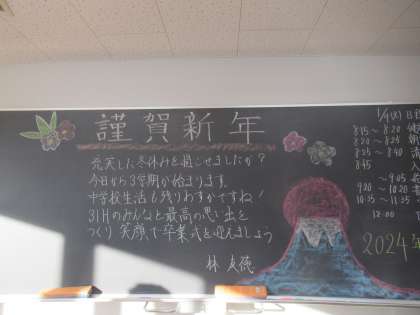 謹賀新年
充実した冬休みを過ごせましたか?
今日から3学期が始まります
中学校生活も残りわずかですね!
31Hのみんなと最高の思い出を
つくり笑顔で卒業式を迎えましょう
林 友徳
1/9(火)日
8:15～8:20
8:20～8:25
8:25～8:40
8:45
～9:05
9:20～10:20
10:35～11:25
12:00
2024年